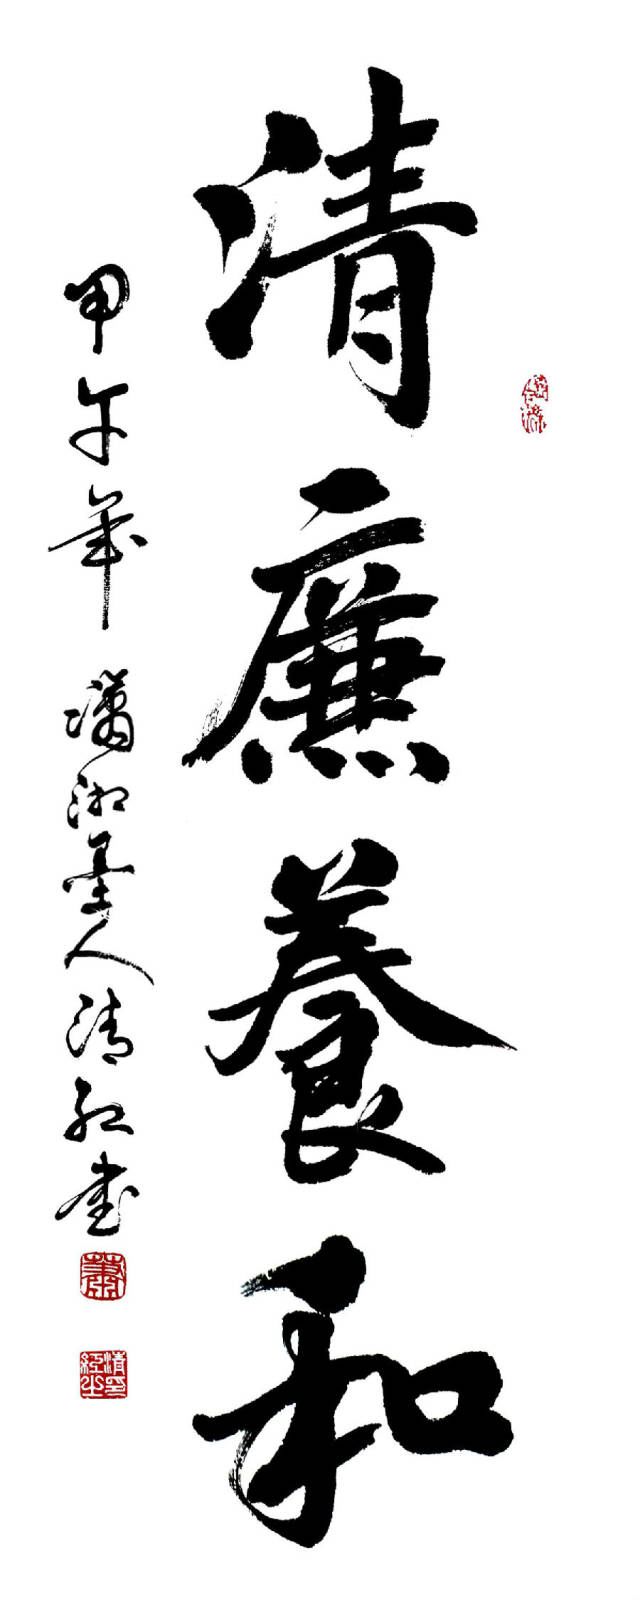 清廉養和
甲午年 瀟湘墨人清紅書